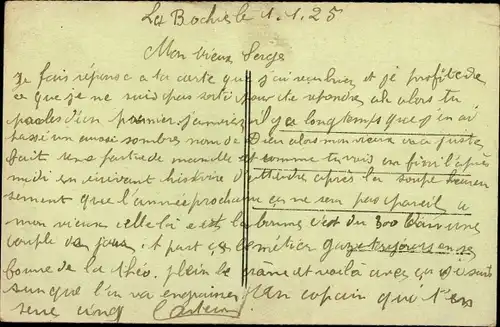 La Rochelle 1.1.25
Mon vieux Serge
Je fais réponse a ta carte que j'ai reçu hier et je profite de
ce que je ne suis pas sorti pour te répondre ah alors tu
parles d'un premier janvier il y a longtemps que j'en ai
passé un aussi sombre nom de Dieu alors mon vieux on a juste
fait une partie de manille et comme tu vois on finit l'après
midi en écrivant histoire d'attendre après la soupe heureu
sement que l'année prochain ça ne sera pas pareil a
mon vieux celle là c'est la bonne c'est du 300 dans une
couple de jours. A part ça le métier gaze toujours on se
bourre de la théo. plein le crâne et voilà avec ça
qu'on va engrainer Un copain qui t'en
serre cinq